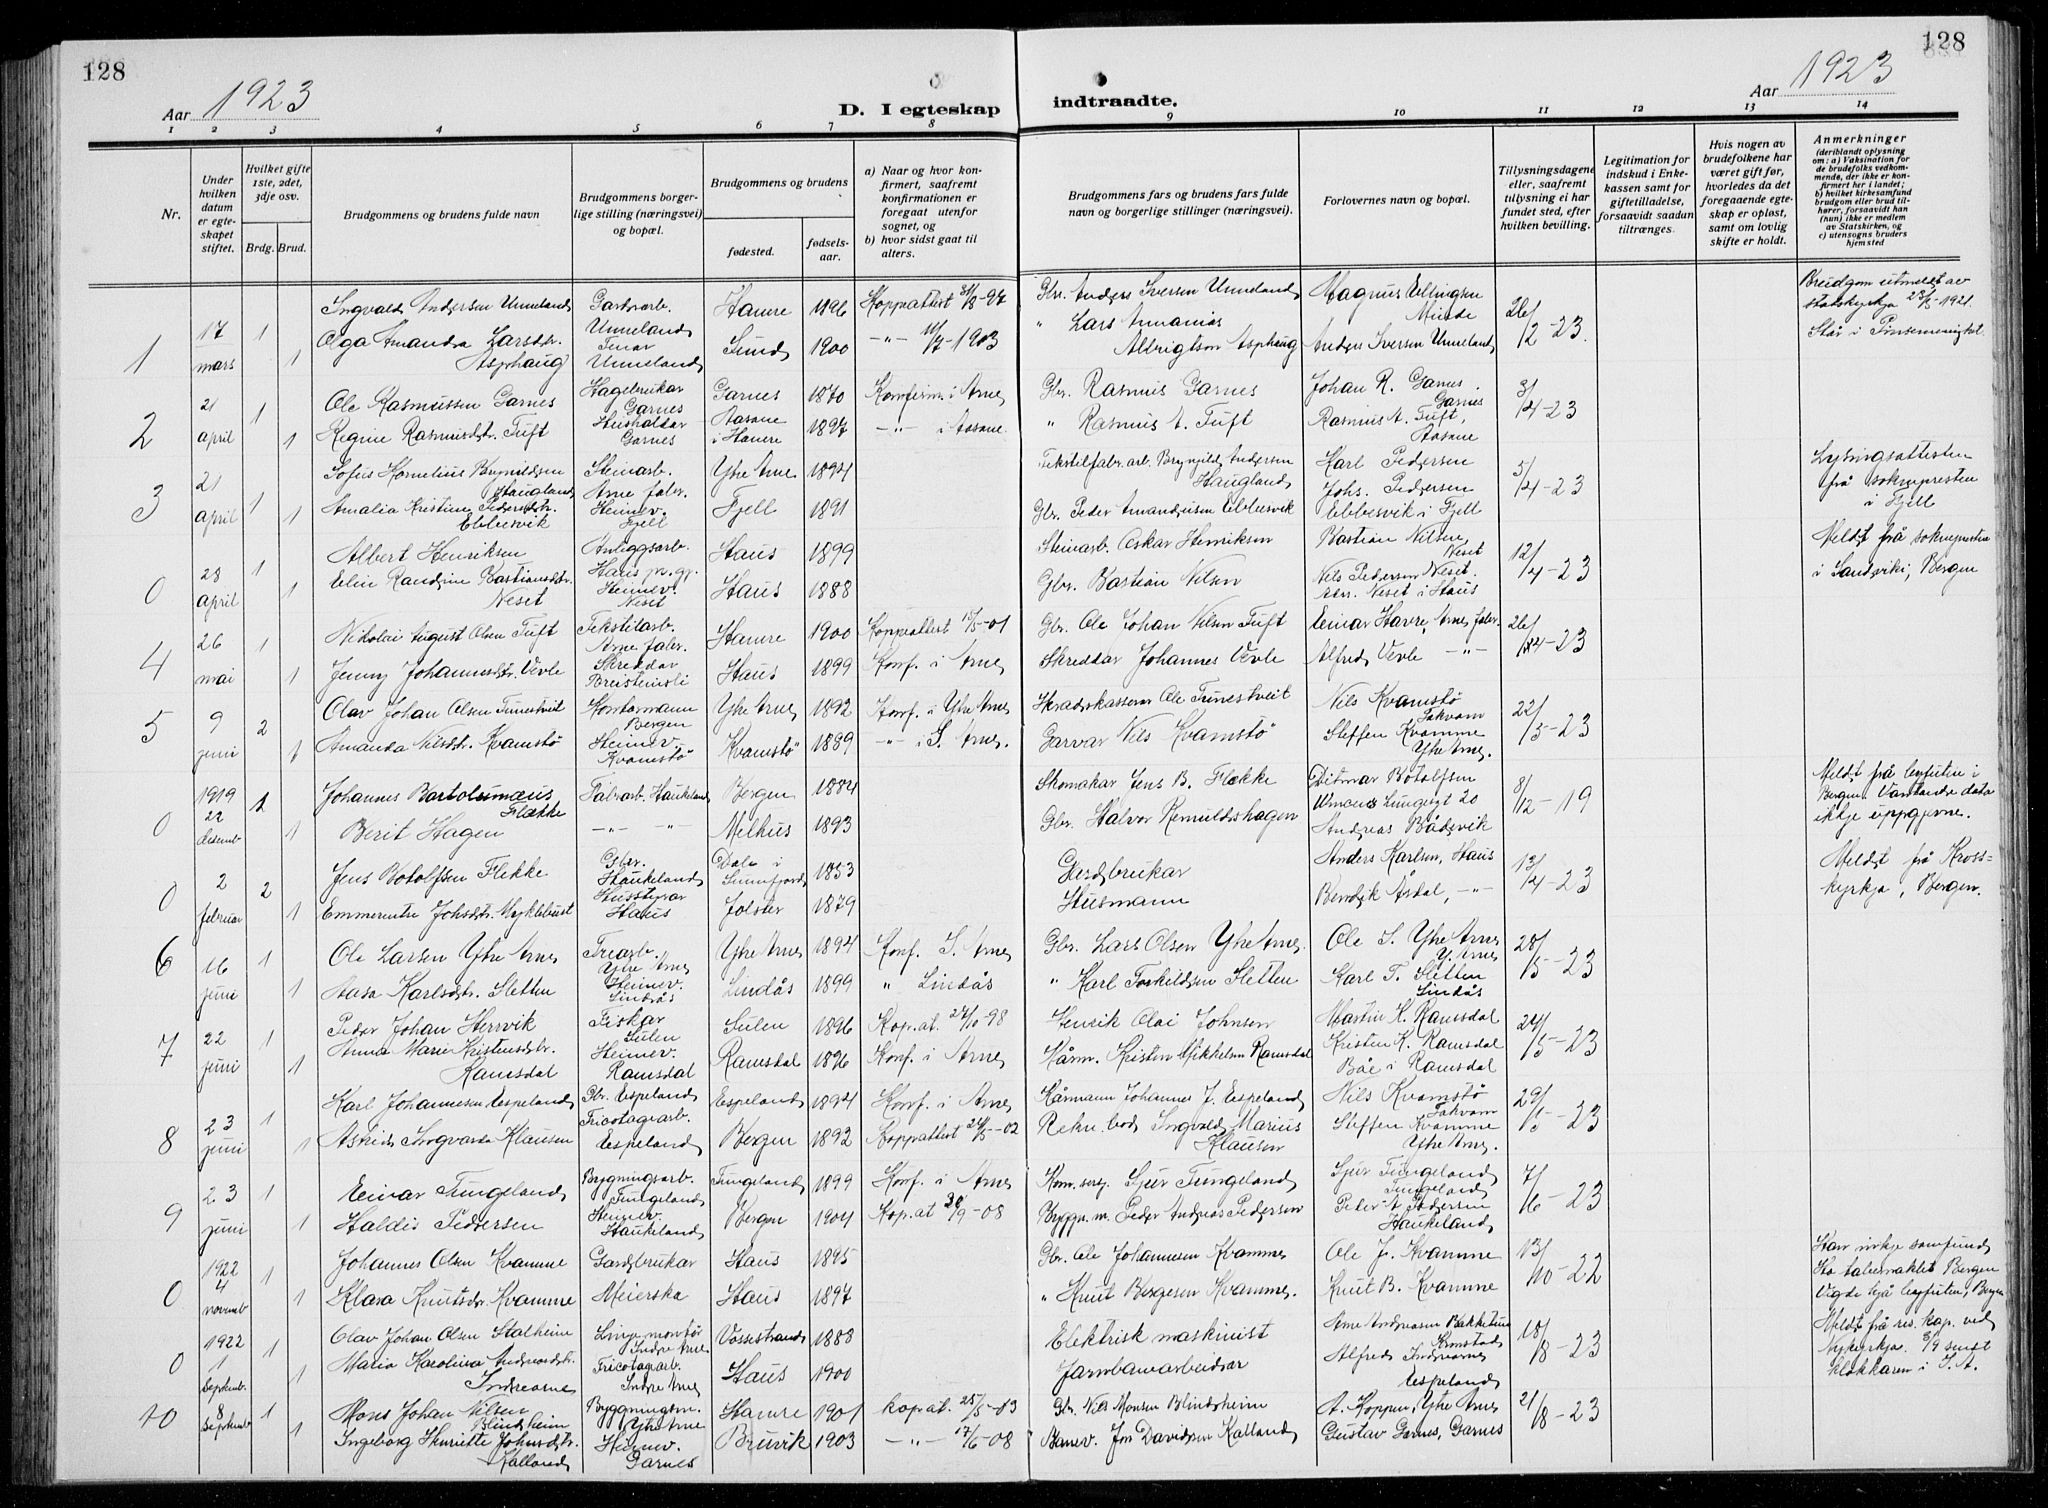 128
128
Aar 1923
D. I egteskap
indtraadte.
Aar 1923
1 2 3 4 5 6 7 8 9 10 11 12 13 14
Nr.
Under hvilken datum er egteskapet stiftet.
Hvilket gifte 1ste, 2det, 3dje osv.
Brdg. Brud.
Brudgommens og brudens fulde navn
Brudgommens borgerlige stilling (næringsvei) og bopæl.
Brudgommens og brudens
fødested.
fødselsaar.
a) Naar og hvor konfirmert, saafremt konfirmationen er foregaat utenfor sognet, og
b) hvor sidst gaat til alters.
Brudgommens fars og brudens fars fulde navn og borgerlige stillinger (næringsvei).
Forlovernes navn og bopæl.
Tillysningsdagene eller, saafremt tillysning ei har fundet sted, efter hvilken bevilling.
Legitimation for indskud i Enkekassen samt for giftetilladelse, forsaavidt saadan tiltrænges.
Hvis nogen av brudefolkene har været gift før, hvorledes da det foregaaende egteskap er opløst, samt om lovlig skifte er holdt.
Anmerkninger
(deriblandt oplysning om: a) Vaksination for de brudefolks vedkommende, der ikke er konfirmert her i landet; b) hvilket kirkesamfund brudgom eller brud tilhører, forsaavidt han (hun) ikke er medlem av Statskirken, og c) utensogns bruders hjemsted
1 17 mars 1 Ingvald Andersen Unneland Gardsarb. Unneland Hamre 1896 Koppattest 31/8-97 Gbr. Anders Iversen Unneland Magnus Ellingsen Minde 26/2-23. Brudgom utmeldt av statskyrkja 1921. Står i Pinsemenighet
1 Olga Amanda Larsdtr. Asphaug Tenar Unneland Sund 1900 -"- 10/7-1903 " Lars Ananias Albrigtson Asphaug Anders Iversen Unneland
2 21 april 1 Ole Rasmussen Garnes Hagebrukar Garnes Garnes 1870 Konfirm. i Arne Gbr. Rasmus Garnes Johan R. Garnes Garnes 3/4-23
1 Regine Rasmusdtr. Tuft Hushaldar Garnes Aasane i Hamre 1897 -"- i Aasane " Rasmus A. Tuft Rasmus A. Tuft, Aasane
3 21 april 1 Sofus Kornelius Brynildsen Haugland Steinarb. Arne fabr. Ytre Arne 1894 Tekstilfabr. arb. Brynjild Andersen Haugland Karl Pedersen 5/4-23 Lysingsattesten frå soknepresten i Fjell
1 Amalia Kristine Pedersdtr. Ebbesvik Heimev. Fjell Fjell 1891 Gbr. Peder Amandusen Ebbesvik Johs. Pedersen Ebbesvik i Fjell
0 28 april 1 Albert Henriksen Anleggsarb. Haus pr. gr. Haus 1899 Steinarb. Oskar Henriksen Bastian Nilsen, Neset 12/4-23 Meldt frå soknepresten i Sandviki, Bergen
1 Elin Randine Bastiansdtr. Neset Heimev. Neset Haus 1888 Gbr. Bastian Nilsen Nils Pedersen Neset. Adr. Neset i Haus
4 26 mai 1 Nikolai August Olsen Tuft Tekstilarb. Arne fabr. Hamre 1900 Koppeattest 15/5-01 Gbr. Ole Johan Nilsen Tuft Einar Havre, Arne fabr. 26/4-23
1 Jenny Johannesdtr. Vevle Skreddar Breisteinsli Haus 1899 Konf. i Arne Skreddar Johannes Vevle Alfred Vevle -"-
5 9 juni 2 Olav Johan Olsen Tunestveit Kontormann Bergen Ytre Arne 1892 Konf. i Ytre Arne Heradskasserar Ole Tunestveit Nils Kvamstø Takvam 22/5-23
1 Amanda Nilsdtr. Kvamstø Heimev. Kvamstø Kvamstø 1889 -"- i I. Arne. Garvar Nils Kvamstø Steffen Kvamme Ytre Arne.
0 1919 22 desemb 1 Johannes Bartolumæus Flekke Fabr.arb. Haukeland Bergen 1884 Skomakar Jens B. Flekke Ditmar Botolfsen 8/12-19 Meldt frå byfuten i Bergen. Vantande data ikkje uppgjevne.
1 Berit Hagen -"- " Melhus 1893 Gbr. Halvor Remuldshagen Andreas Bådsvik
0 2 februar 2 Jens Botolfsen Flekke Gbr. Haukeland Dale i Sunnfjord 1853 Gardbrukar Anders Karlsen, Haus 13/4-23 Meldt frå Krosskyrkja, Bergen.
1 Emmerentse Johsdtr. Myklebust Husstyrar Haus Jølster 1879 Husmann Bendik Åsdal, -"-
6 16 juni 1 Ole Larsen Ytre Arne Trearb. Ytre Arne Ytre Arne 1894 Konf. I. Arne Gbr. Lars Olsen Ytre Arne. Ole I. Ytre Arne Y. Arne 28/5-23
1 Aasa Karlsdtr. Sletten Heimev. Lindås Lindås 1899 " Lindås " Karl Torkildsen Sletten Karl T. Sletten Lindås
7 22 juni 1 Peder Johan Herrvik Fiskar Sulen Sulen 1896 Kop.at. 27/10-98 Henrik Olai Johnsen Martin K. Ramsdal 24/5-23
1 Anna Marie Kristensdtr. Ramsdal Heimev. Ramsdal Ramsdal 1896 Konf. i Arne Kårm. Kristen Mikkelsen Ramsdal Kristen K. Ramsdal Båe i Ramsdal
8 23 juni 1 Karl Johannesen Espeland Gbr. Espeland Espeland 1894 Konf. i Arne Kårmann Johannes J. Espeland Nils Kvamstø Takvam 29/5-23
1 Astrid Ingvarda Klausen Tricotagearb. Espeland Bergen 1892 Koppattest 24/5-02 Rekn. bod Ingvald Marius Klausen Steffen Kvamme Ytre Arne.
9 23 juni 1 Einar Tungeland Bygningsarb. Tungeland Tungeland 1899 Konf. i Arne Sjur Tungeland Sjur Tungeland Tungeland 7/6-23
1 Haldis Pedersen Heimev. Haukeland Bergen 1904 Kop.at 20/9-08 Byggm. Peder Andreas Pedersen Peter A. Pedersen Haukeland
0 1922 4 novemb 1 Johannes Olsen Kvamme Gardbrukar Haus 1895 Gbr. Ole Johannesen Kvamme Ole J. Kvamme 13/10-22 Bergen Vigde hjå byfuten, Bergen
1 Klara Knutsdr. Kvamme Meierska Haus 1897 " Knut Bergesen Kvamme. Knut B. Kvamme
0 1922 1 Septemb. 1 Olav Johan Olsen Stalheim Linjemontør Indre Arne Vossestrand 1888 Elektrisk maskinist Arne Andreasen 18/8-23 Meldt frå res. kap. ved Nykyrkja. 8/9 sendt klokkaren i I. A.
1 Maria Karolina Andreasdtr. Indrearne Tricotagearb. Indre Arne Haus 1900 Jarnbanearbeidar Alfred Indrearne Espeland
10 8 Septemb 1 Mons Johan Nilsen Blindheim Byggningsm. Ytre Arne Hamre 1901 kop.at. 25/5-03 Gbr. Nils Monsen Blindheim A. Koppen, Ytre Arne 21/8-23
1 Ingeborg Henriette Johnsdtr. Kalland Heimev. Garnes Bruvik 1903 -"- 17/6-08 Banev. Jon Davidsen Kalland Gustav Garnes, Garnes